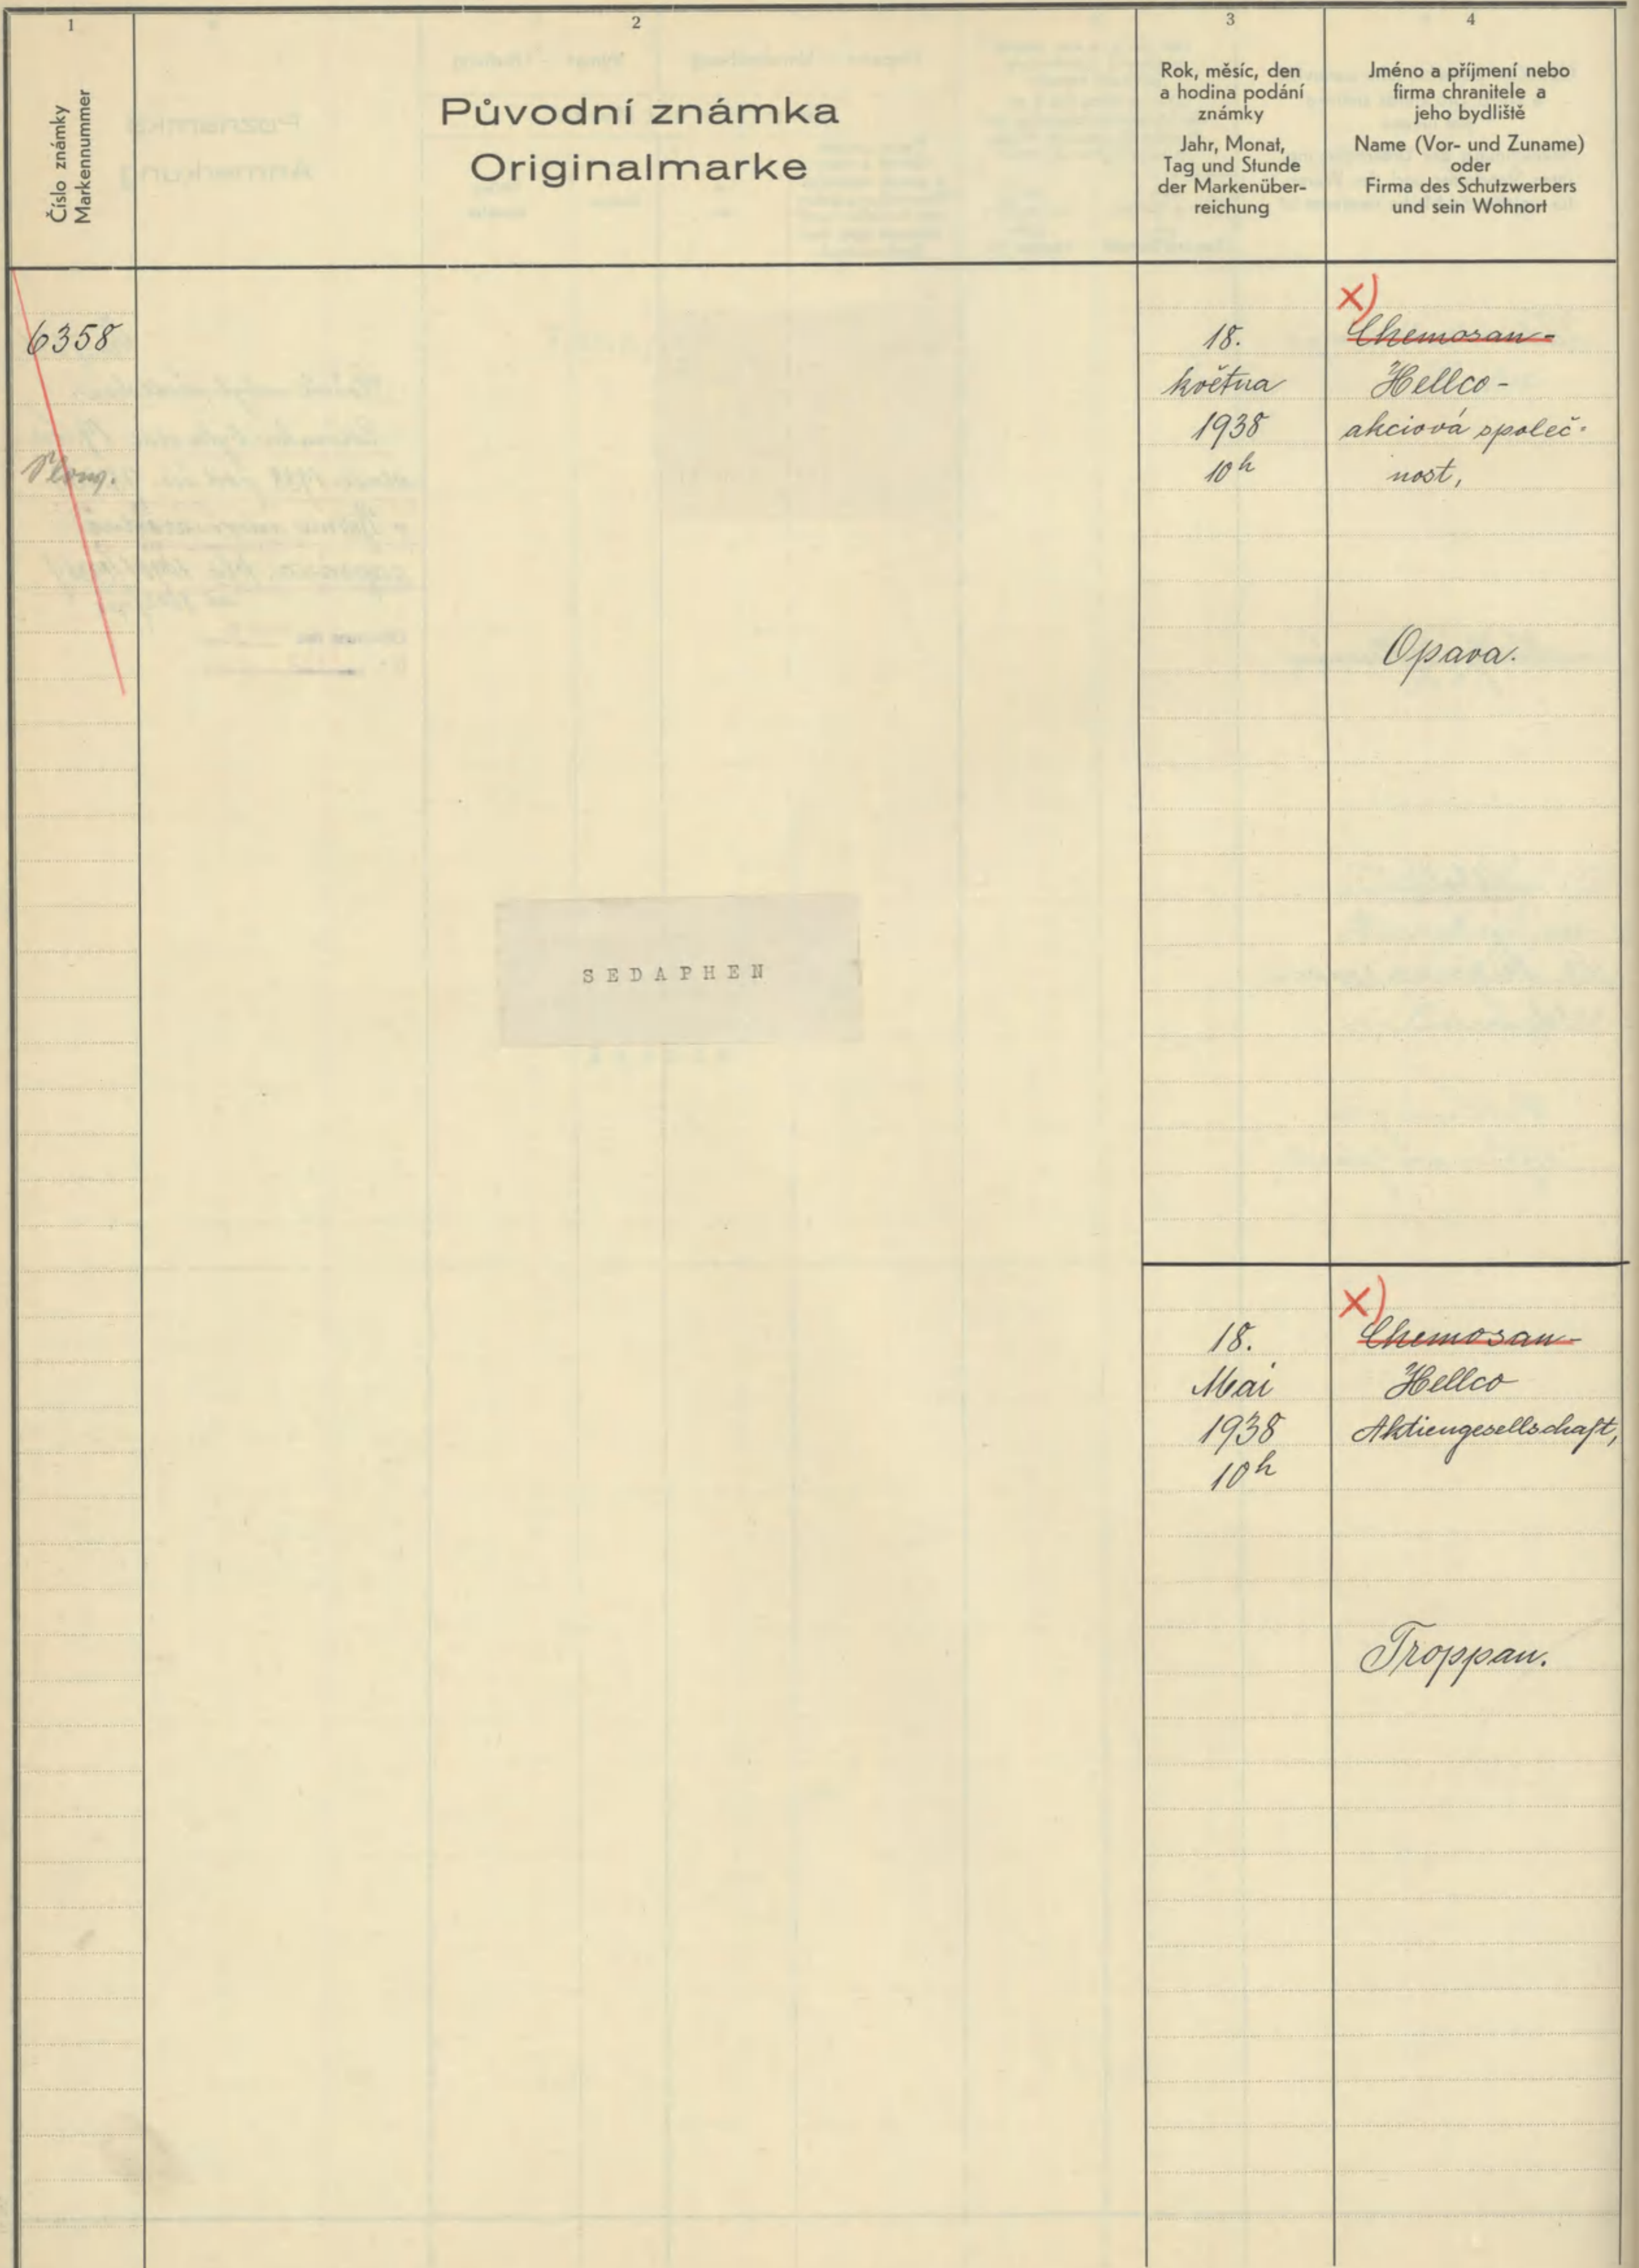 1
Číslo známky
Markennummer
2
Původní známka
Originalmarke
3
Rok, měsíc, den
a hodina podání
známky
Jahr, Monat,
Tag und Stunde
der Markenüber-
reichung
4
Jméno a příjmení nebo
firma chranitele a
jeho bydliště
Name (Vor- und Zuname)
oder
Firma des Schutzwerbers
und sein Wohnort
6358
SEDAPHEN
18.
května
1938
10 h
x)
Chemosan-
Hellco-
akciová společ-
nost,
Opava.
18.
Mai
1938
10h
x)
Chemosan-
Hellco
Aktiengesellschaft,
Troppau.